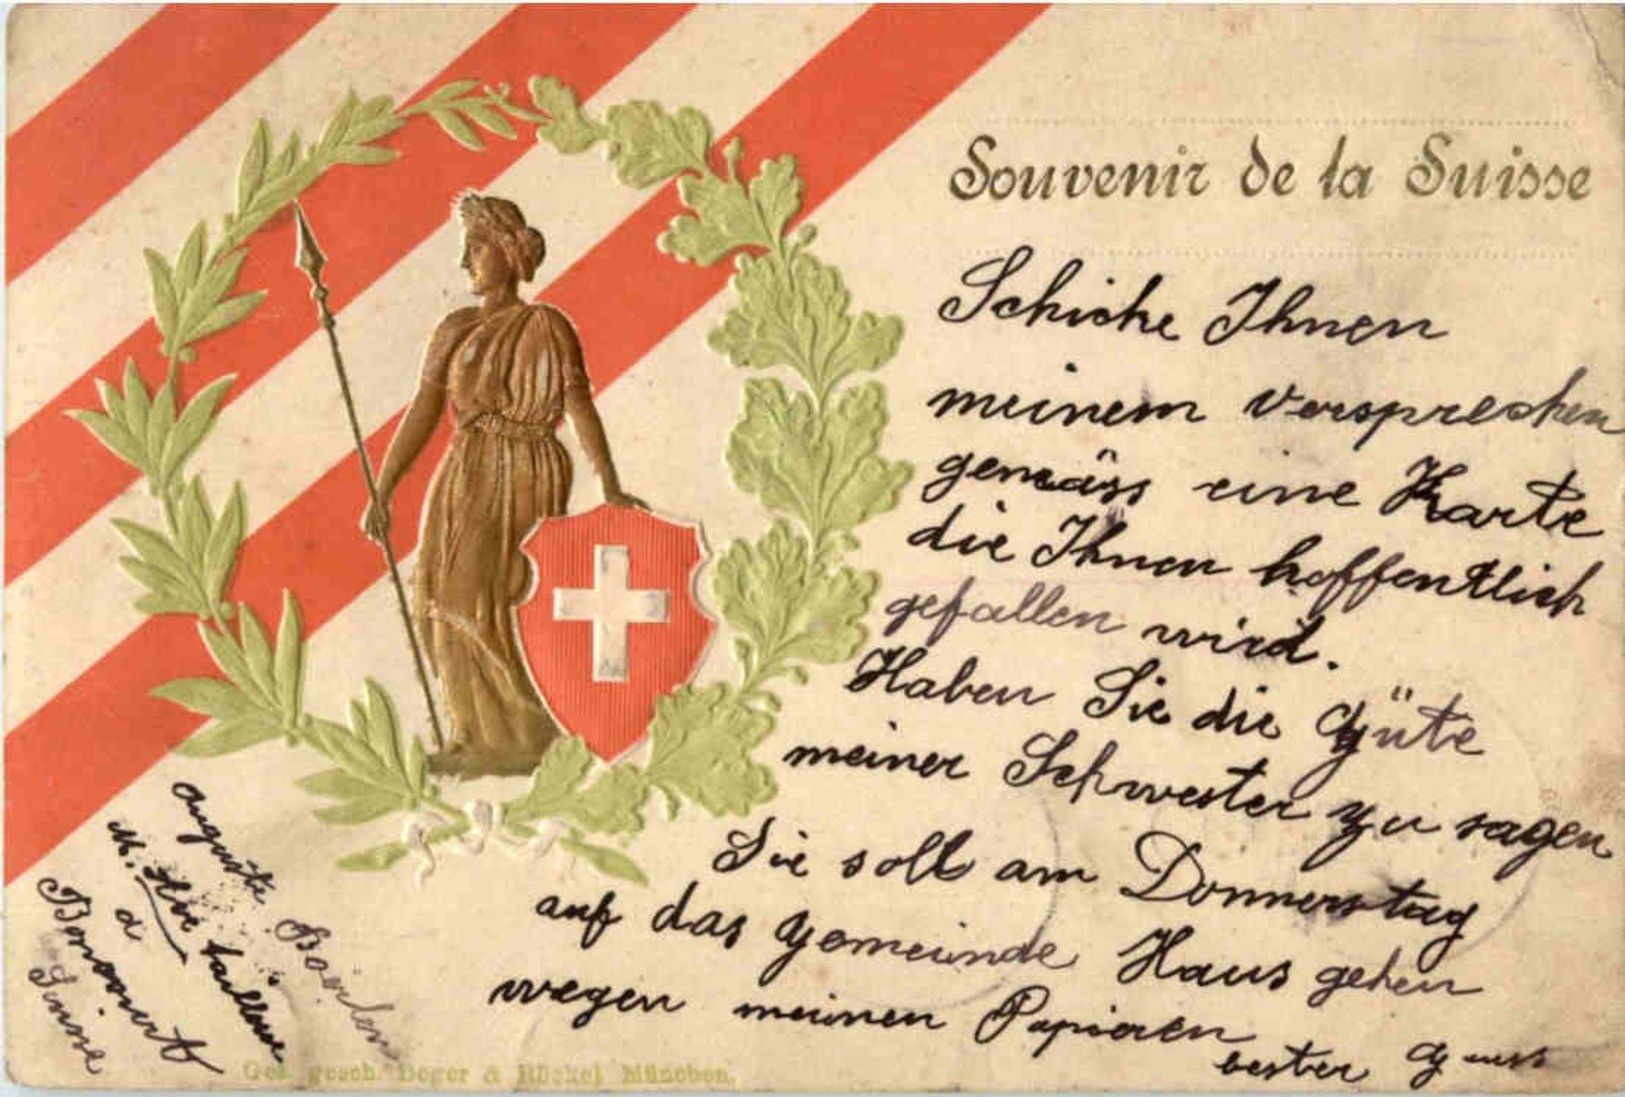 Souvenir de la Suisse
Schicke Ihnen
meinem versprechen
gemäss eine Karte
die Ihnen hoffentlich
gefallen wird.
Haben Sie die Güte
meiner Schwester zu sagen
Sie soll am Donnerstag
auf das gemeinde Haus gehen
wegen meinen Papieren
bester Gruss
Auguste
M.
à
Boncourt
Suisse
Ges. gesch. Deger & Rückel München.